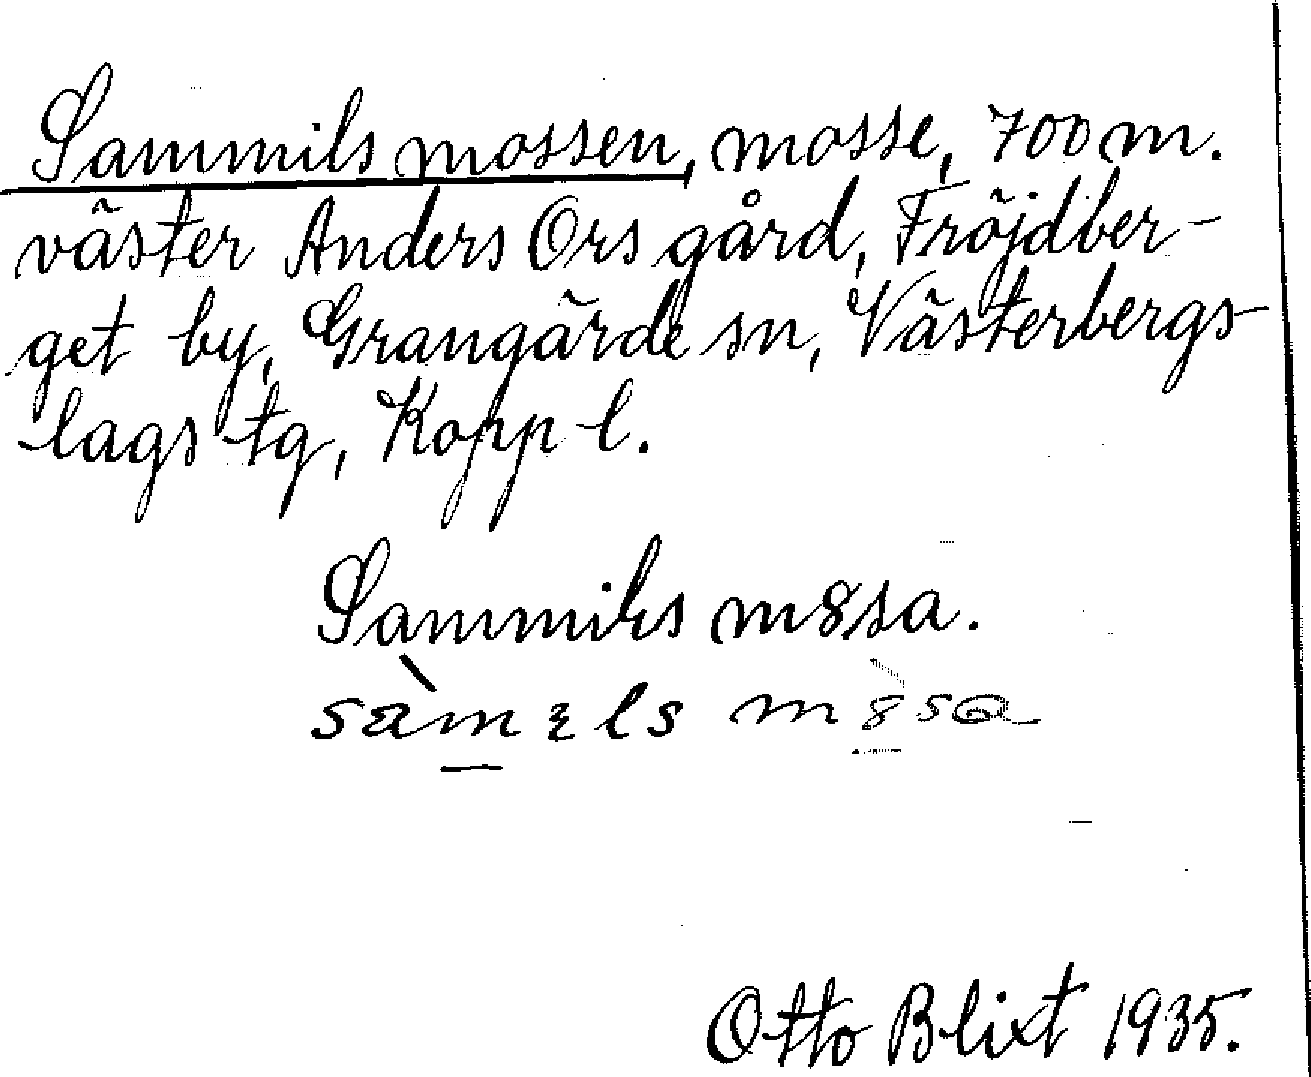 Sammils mossen, mosse, 700 m.
väster Anders Ors gård, Fröjdber-
get by, Grangärde sn, Västerbergs-
lags tg, Kopp l.
Sammils m8sa.
Otto Blixt 1935.